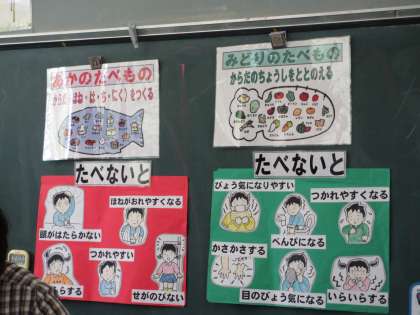 あかのたべもの
からだ(ほね・は・ち・にく)をつくる
みどりのたべもの
からだのちょうしをととのえる
たべないと
ほねがおれやすくなる
頭がはたらかない
つかれやすい
らする
せがのびない
たべないと
びょう気になりやすい
つかれやすくなる
かさかさする
べんぴになる
目のびょう気になる
いらいらする